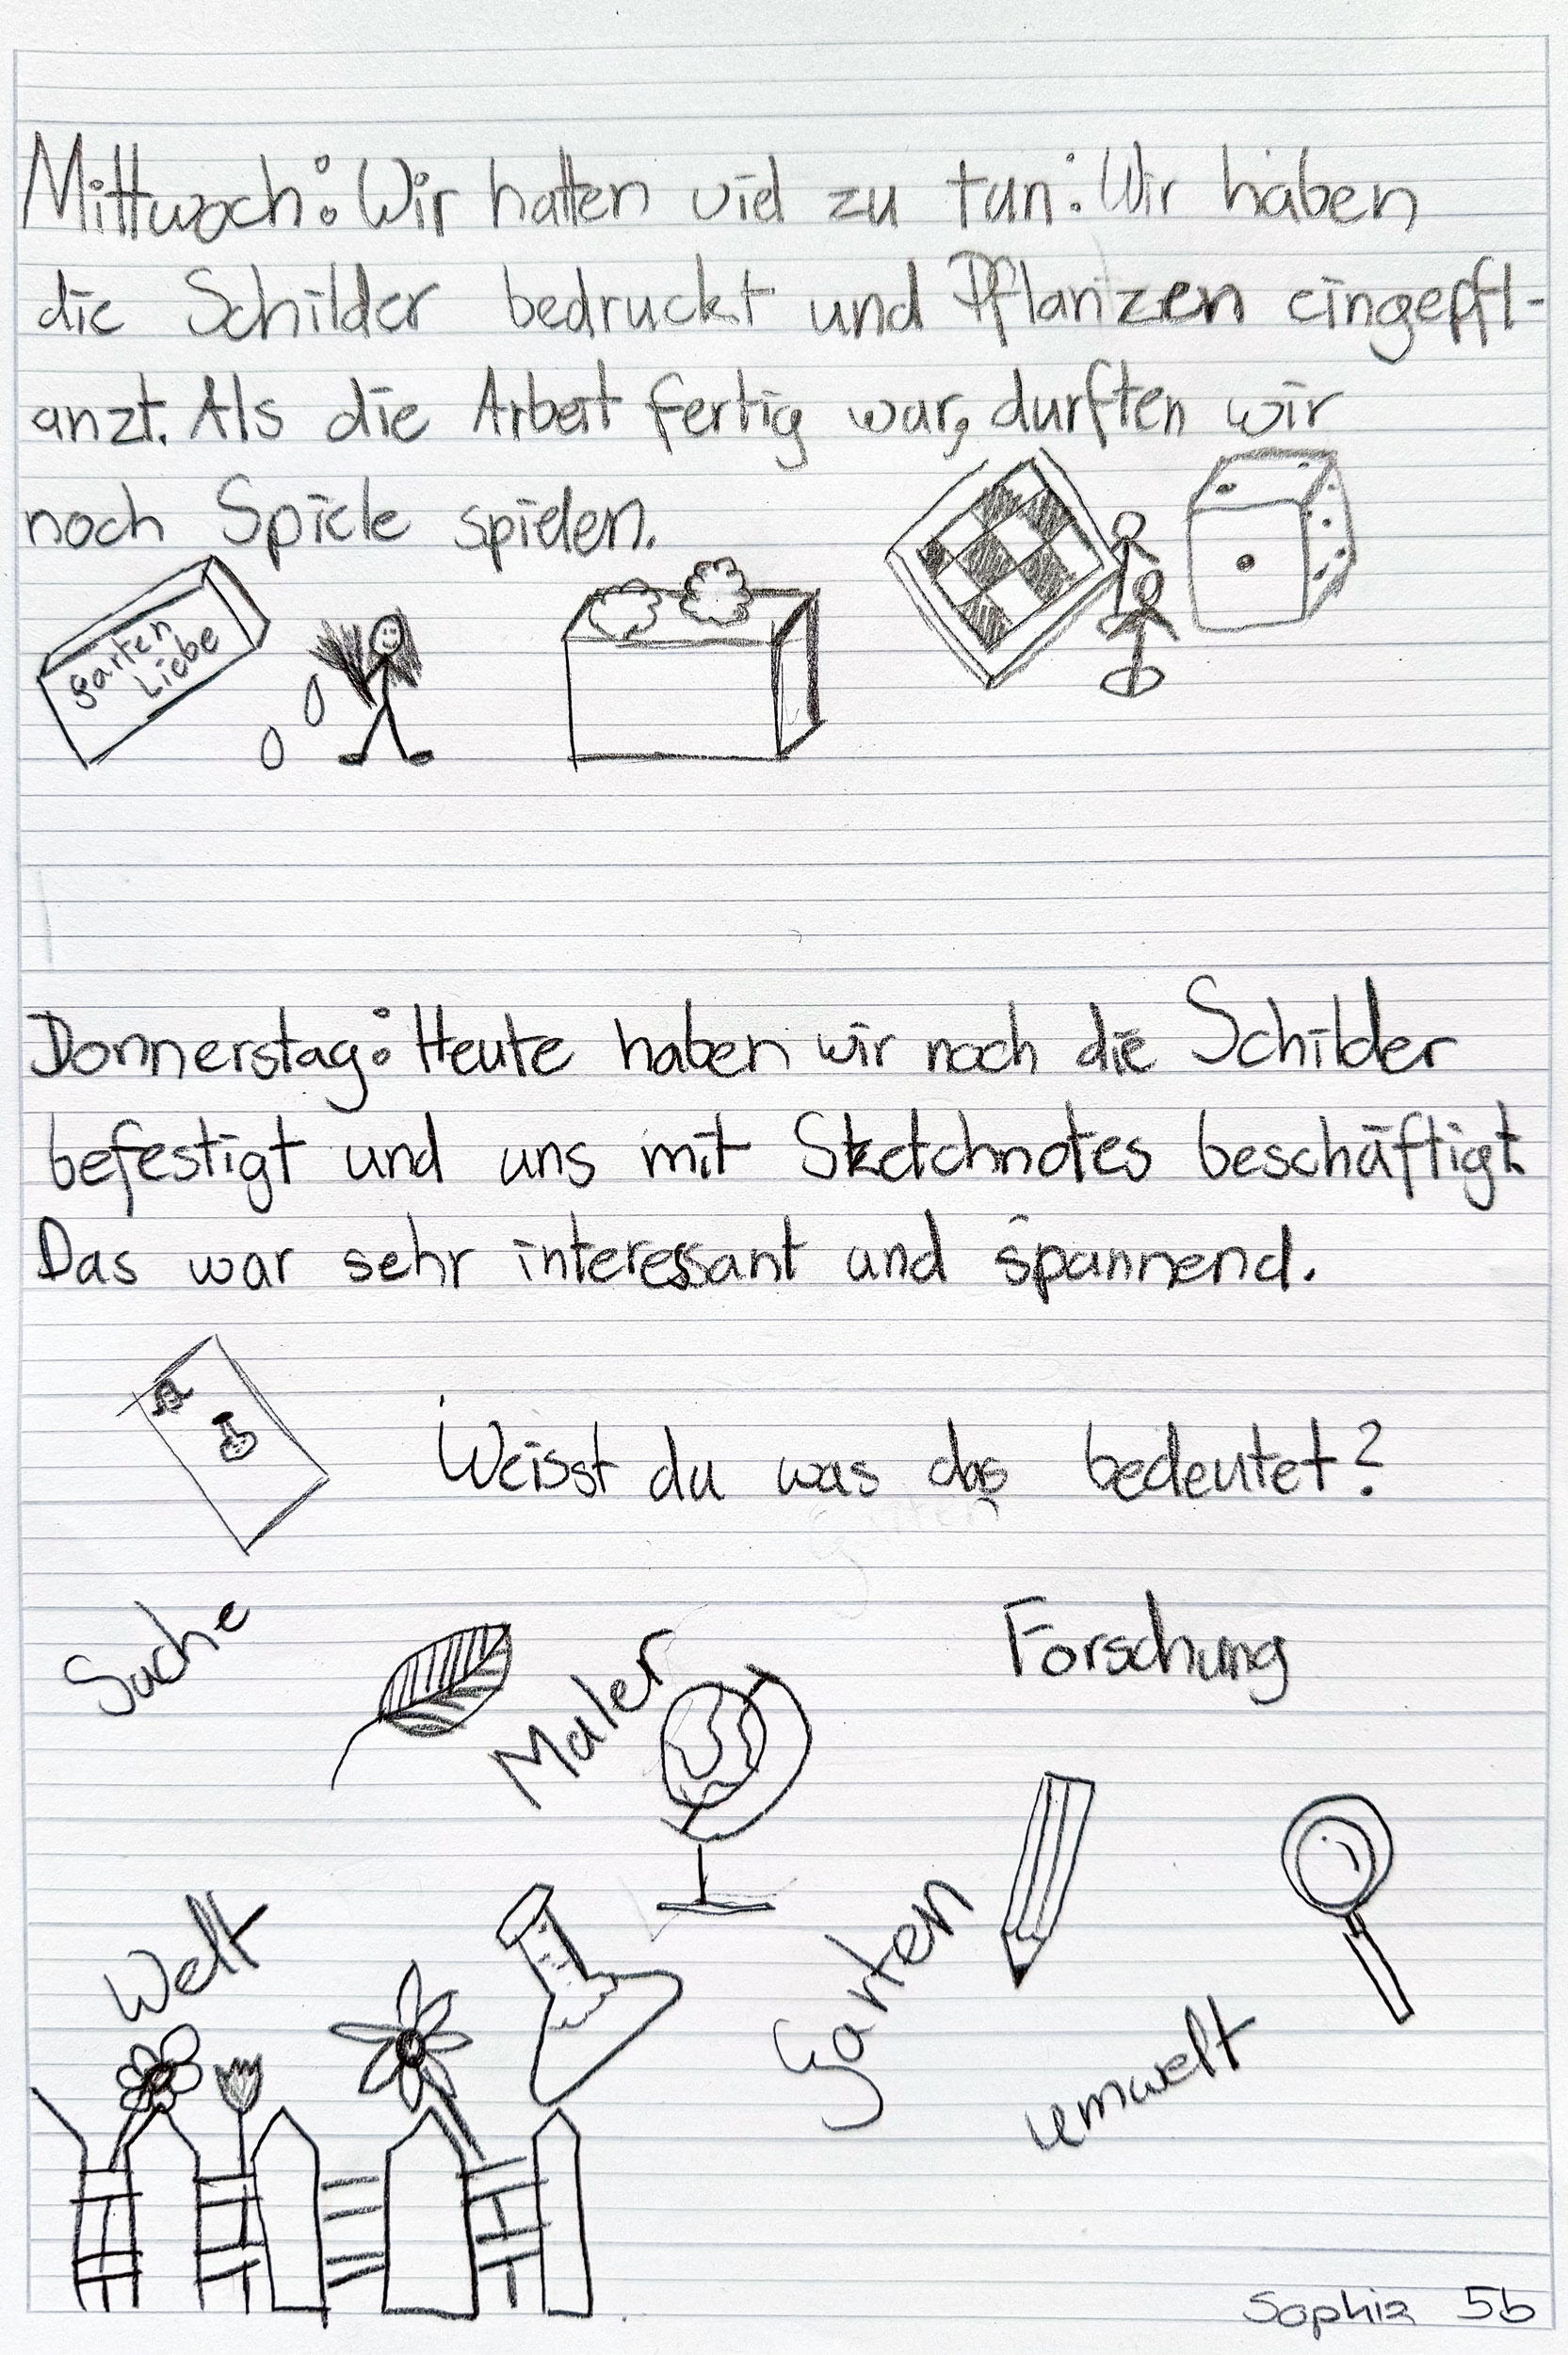 Mittwoch: Wir hatten viel zu tun: Wir haben
die Schilder bedruckt und Pflanzen eingepfl-
anzt. Als die Arbeit fertig war, durften wir
noch Spiele spielen.
garten
Liebe
Donnerstag: Heute haben wir noch die Schilder
befestigt und uns mit Sketchnotes beschäftigt.
Das war sehr interessant und spannend.
Weisst du was das bedeutet?
Suche
Maler
Forschung
Welt
Garten
umwelt
Sophia 5b